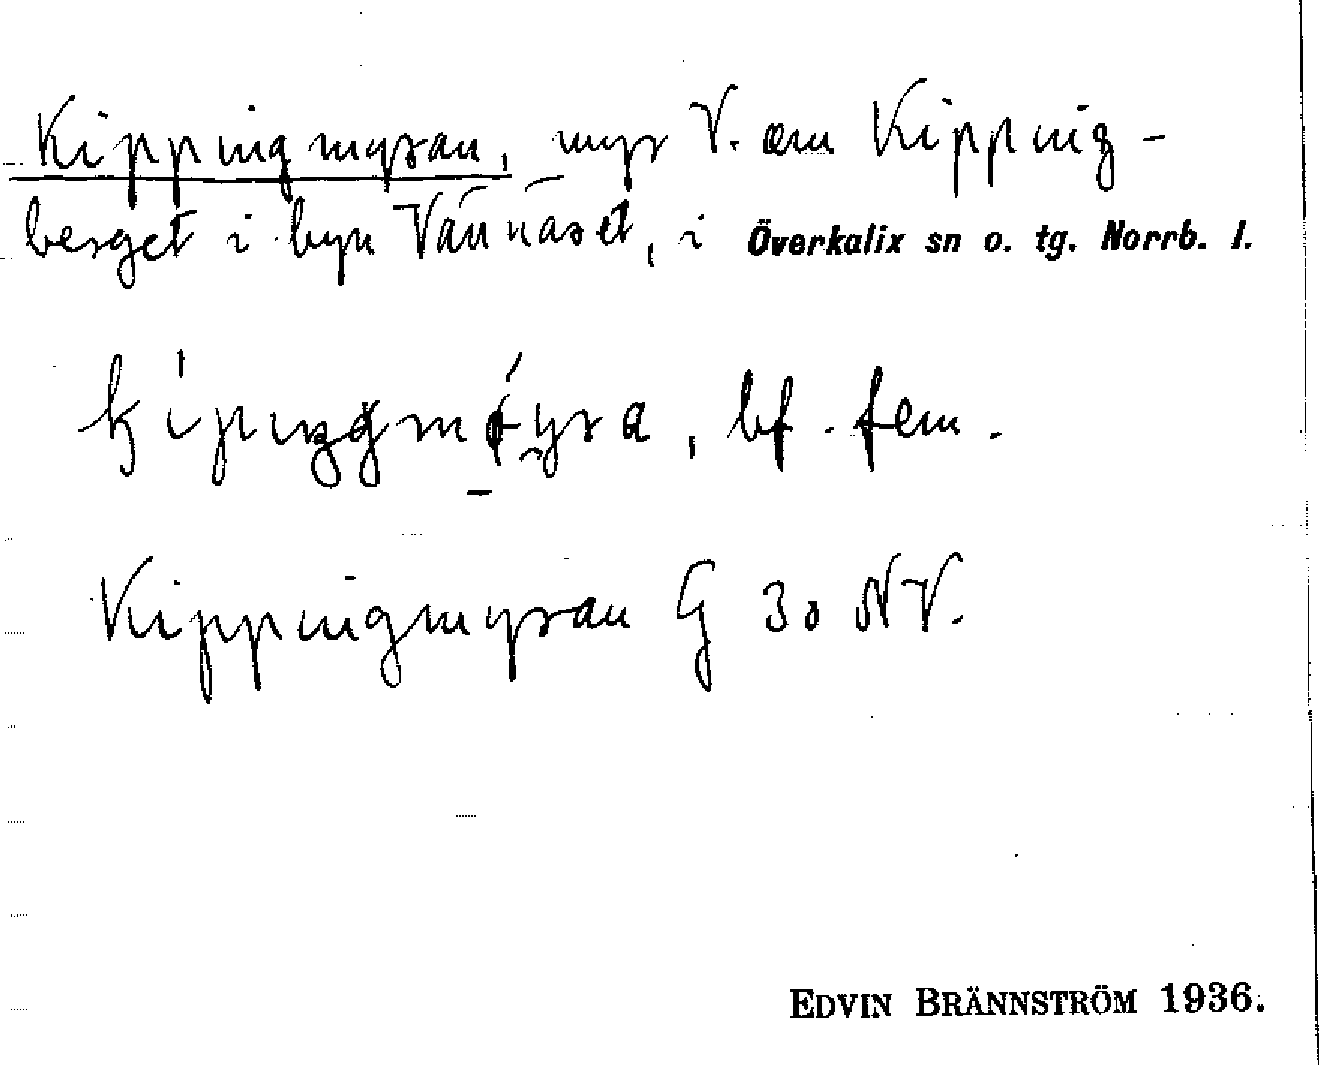 Kippingmyran, myr V. om Kipping-
berget i byn Vännäset, i Överkalix sn o. tg. Norrb. l.
bf. fem.
Kippingmyran G 30 NV.
EDVIN BRÄNNSTRÖM 1936.